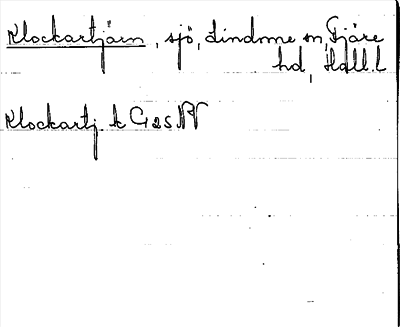 Klockartjärn, sjö, Lindome sn, Fjäre
hd, Hall. l
Klockartj k G 2 s NV